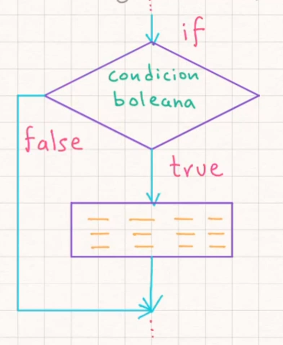 if
condicion
boleana
false
true